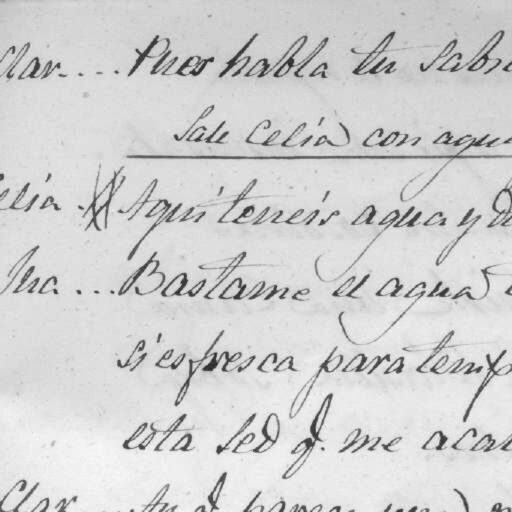 Clar.... Pues habla tu sabr
Sale Celia con agua
Celia. Aqui teneis agua y d
Jua... Bastame el agua
si es fresca para temp
esta sed q. me acab
Clar.